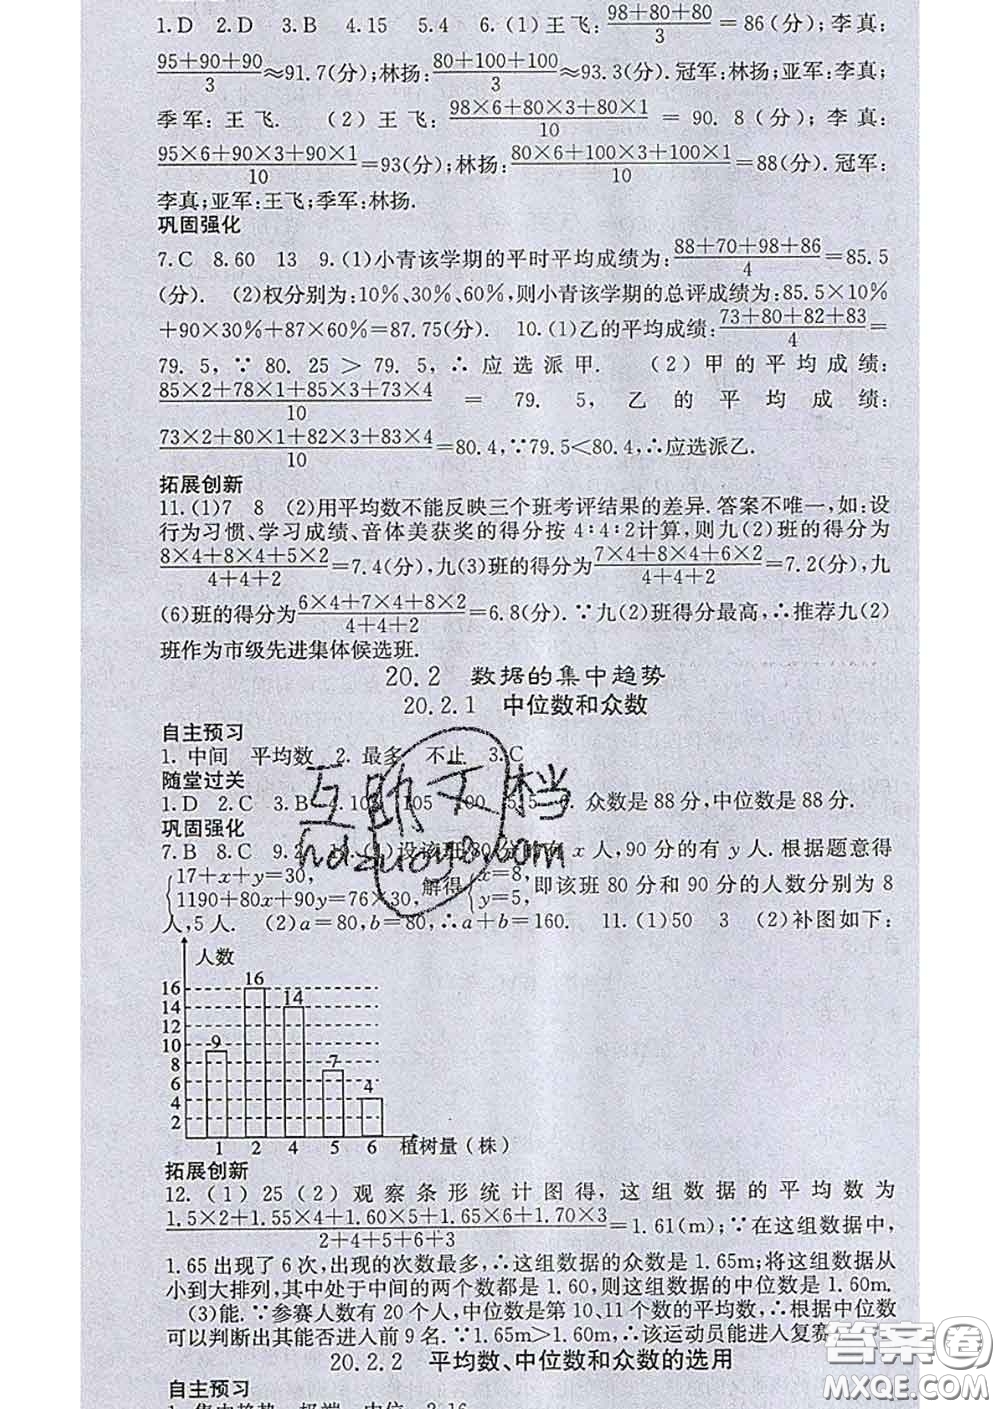 1.D 2.D 3.B 4.15 5.4 6.(1)王飞:(98+80+80)/3=86(分);李真:
(95+90+90)/3≈91.7(分);林扬:(80+100+100)/3≈93.3(分).冠军:林扬;亚军:李真;
季军:王飞. (2)王飞:(98×6+80×3+80×1)/10=90.8(分);李真:
(95×6+90×3+90×1)/10=93(分);林扬:(80×6+100×3+100×1)/10=88(分).冠军:
李真;亚军:王飞;季军:林扬.
巩固强化
7.C 8.60 13 9.(1)小青该学期的平时平均成绩为:(88+70+98+86)/4=85.5
(分). (2)权分别为:10%、30%、60%,则小青该学期的总评成绩为:85.5×10%
+90×30%+87×60%=87.75(分). 10.(1)乙的平均成绩:(73+80+82+83)/4=
79.5,∵80.25>79.5,∴应选派甲. (2)甲的平均成绩:
(85×2+78×1+85×3+73×4)/10=79.5,乙的平均成绩:
(73×2+80×1+82×3+83×4)/10=80.4,∵79.5<80.4,∴应选派乙.
拓展创新
11.(1)7 8 (2)用平均数不能反映三个班考评结果的差异.答案不唯一,如:设
行为习惯、学习成绩、音体美获奖的得分按4:4:2计算,则九(2)班的得分为
(8×4+8×4+5×2)/(4+4+2)=7.4(分),九(3)班的得分为(7×4+8×4+6×2)/(4+4+2)=7.2(分),九
(6)班的得分为(6×4+7×4+8×2)/(4+4+2)=6.8(分).∵九(2)班得分最高,∴推荐九(2)
班作为市级先进集体候选班.
20.2 数据的集中趋势
20.2.1 中位数和众数
自主预习
1.中间 平均数 2.最多 不止 3.C
随堂过关
1.D 2.C 3.B 4.10 105 100 5.5 6.众数是88分,中位数是88分.
巩固强化
7.B 8.C 9.2 (1)设该班80分的有x人,90分的有y人.根据题意得
{17+x+y=30, 1190+80x+90y=76×30, 解得{x=8, y=5, 即该班80分和90分的人数分别为8
人,5人. (2)a=80,b=80,∴a+b=160. 11.(1)50 3 (2)补图如下:
人数
16
14
12
10
8
6
4
2
9 16 14 7 4
1 2 4 5 6 植树量(株)
拓展创新
12.(1)25(2)观察条形统计图得,这组数据的平均数为
(1.5×2+1.55×4+1.60×5+1.65×6+1.70×3)/(2+4+5+6+3)=1.61(m);∵在这组数据中,
1.65出现了6次,出现的次数最多,∴这组数据的众数是1.65m;将这组数据从
小到大排列,其中处于中间的两个数都是1.60,则这组数据的中位数是1.60m.
(3)能.∵参赛人数有20个人,中位数是第10、11个数的平均数,∴根据中位数
可以判断出其能否进入前9名.∵1.65m>1.60m,∴该运动员能进入复赛
20.2.2 平均数、中位数和众数的选用
自主预习
1.集中趋势 极端 中位 2.16
互助文档
hdzuoye.com
答案圈
MXQE.COM